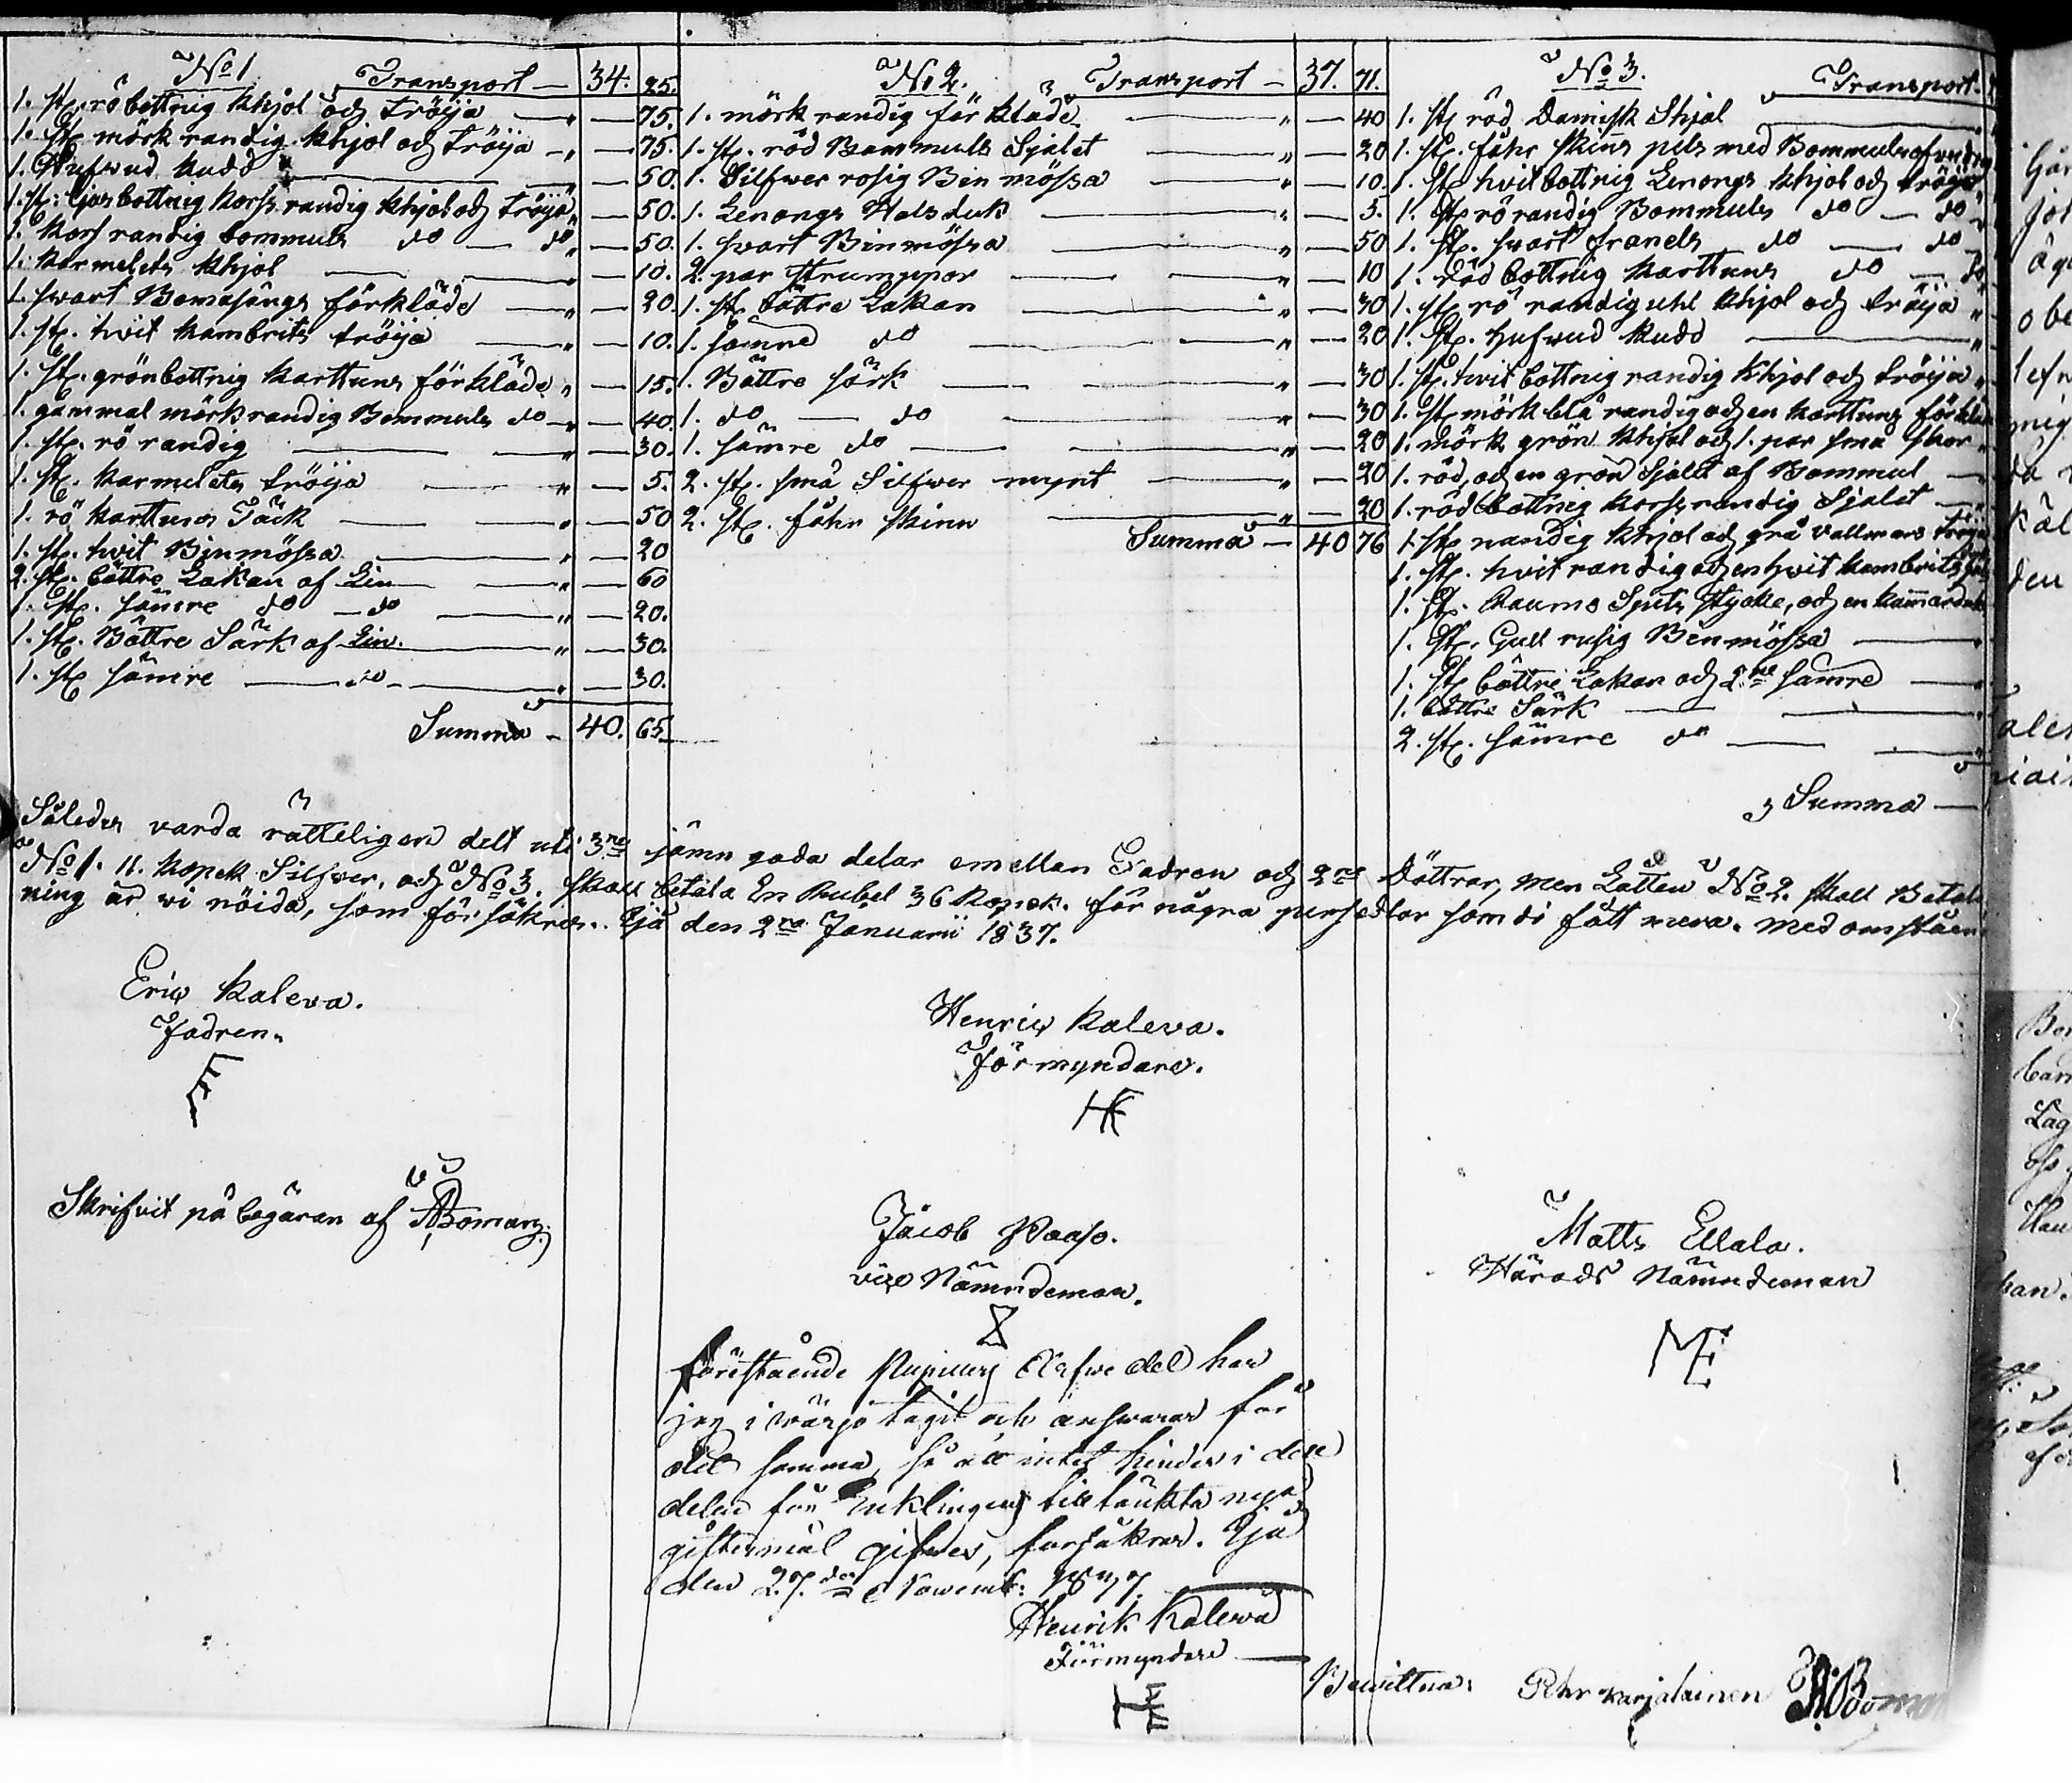 No 1 Transport — 34. 25.
1. st. rö bottnig khjol och tröija — " — 75.
1. st. mörk randig khjol och tröija — " — 75.
1. Hufwud kudd — " — 50.
1. st. ljos bottnig korss randig khjol och tröija " — 50.
1. kors randig bommuls do — do " — 50.
1. karmelets khjol — " — 10.
1. swart Bomasängs förkläde — " — 20.
1. st. hvit kambrits tröija — " — 10.
1. st. grönbottnig karttuns förkläde " — 15.
1. gammal mörk randig Bommuls do — " — 40.
1. st. rö randig — " — 30.
1. st. karmelets tröija — " — 5.
1. rö karttuns Täck — " — 50
1. st. hvit Binmössa — " — 20
2. st. bättre Lakan af Lin — " — 60
1. st. sämre do — do — " — 20.
1. st. Bättre Särk af Lin. — " — 30.
1. st. sämre — do — " — 30.
Summa — 40. 65.
No 2. Transport — 37. 71.
1. mörk randig förkläde — " — 40
1. st. röd Bommuls Sjalet — " — 20
1. Silfwer rosig Binmössa — " — 10.
1. Lenongs Halsduk — " — 5.
1. swart Binmössa — " — 50
2. par strumpor — " — 10
1. st. bättre Lakan — " — 30
1. sämre do — " — 20
1. Bättre särk — " — 30
1. do — do — " — 30
1. sämre do — " — 20
2. st. små Silfwer mynt — " — 20
2. st. fåhr skinn — " — 20
Summa — 40 76
No 3. Transport —
1. st. röd Damisk Khjol
1. st. fåhr skinns pels med Bommuls
1. st. hvit bottnig Lenongs khjol och tröija
1. st. rö randig Bommuls do — do "
1. st. swart franels do — do
1. röd bottnig karttuns do — do
1. st. rö randig uhl khjol och tröija "
1. st. hufwud kudd — "
1. st. hvit bottnig randig khjol och tröija "
1. st. mörk blå randig och en karttuns
1. mörk grön khjol och 1. par små skor "
1. röd, och en grön Sjalet af Bommul —
1. röd bottnig korss randig Sjalet —
1. st. randig khjol och grå vallmars tröija
1. st. hvit randig och en hvit kambrits
1. st. Raumo Spets stycke, och en
1. st. Gull rusig Binmössa —
1. st. bättre Lakan och 2ne sämre —
1. bättre Särk —
2. st. sämre do —
Summa —
Således varda rätteligen delt uti 3ne jämn goda delar emellan Fadren och 2ne Döttrar, men Lätten No 2. skall Betal
No 1. 11. kopek Silfver, och No 3. skall betala En Rubel 36 Kopek. för några persedlar som di fått mera. Med omståen
ning är vi nöida, som försäkras. Eja den 2ra Januarii 1837.
Eric Kaleva.
Fadren.
Henric Kaleva.
Förmyndare.
HK
Skrifvit på begäran af Boman.
Jacob Paaso.
vice Nämndeman.
Matts Ellala.
Härads Nämndeman
ME
Förestående Arfwedel har
jag i wärjo tagit och answarar för
det samma, så att intet hinder i den
delen för Enklingens tilltänkta nya
giftermål gifwes, försäkras. Eja
den 27.de Novemb: 1837.
Henrik Kalewa
Förmyndare —
Bewittna: Karjalainen